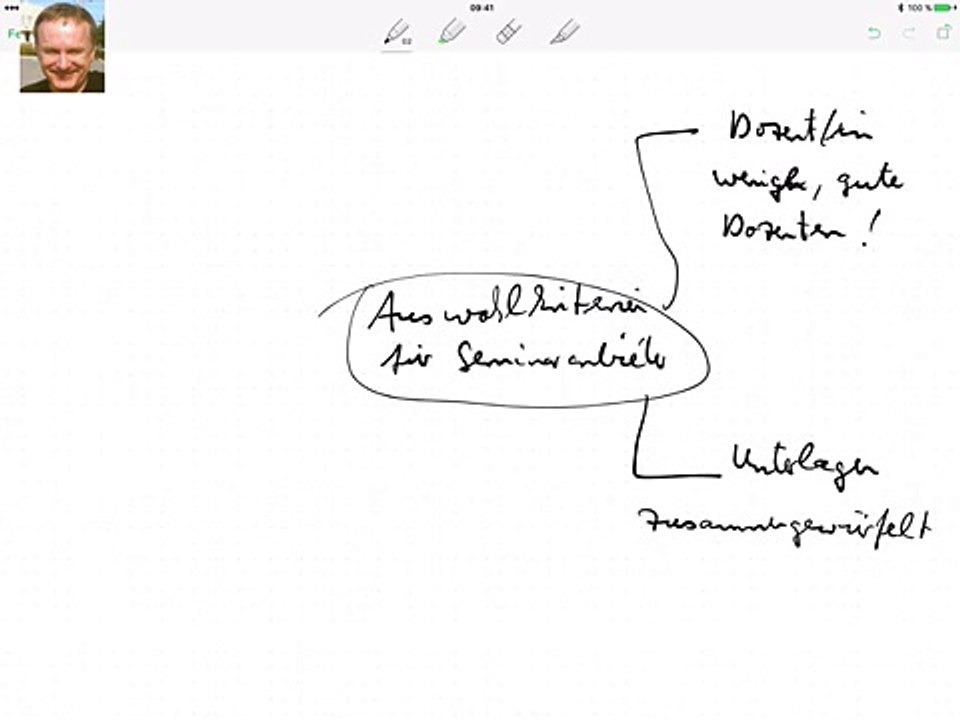 09:41
100 %
Fe
02
Dozent/in
wenige, gute
Dozenten!
Auswahlkriterien
für Seminaranbieter
Unterlagen
zusammengewürfelt